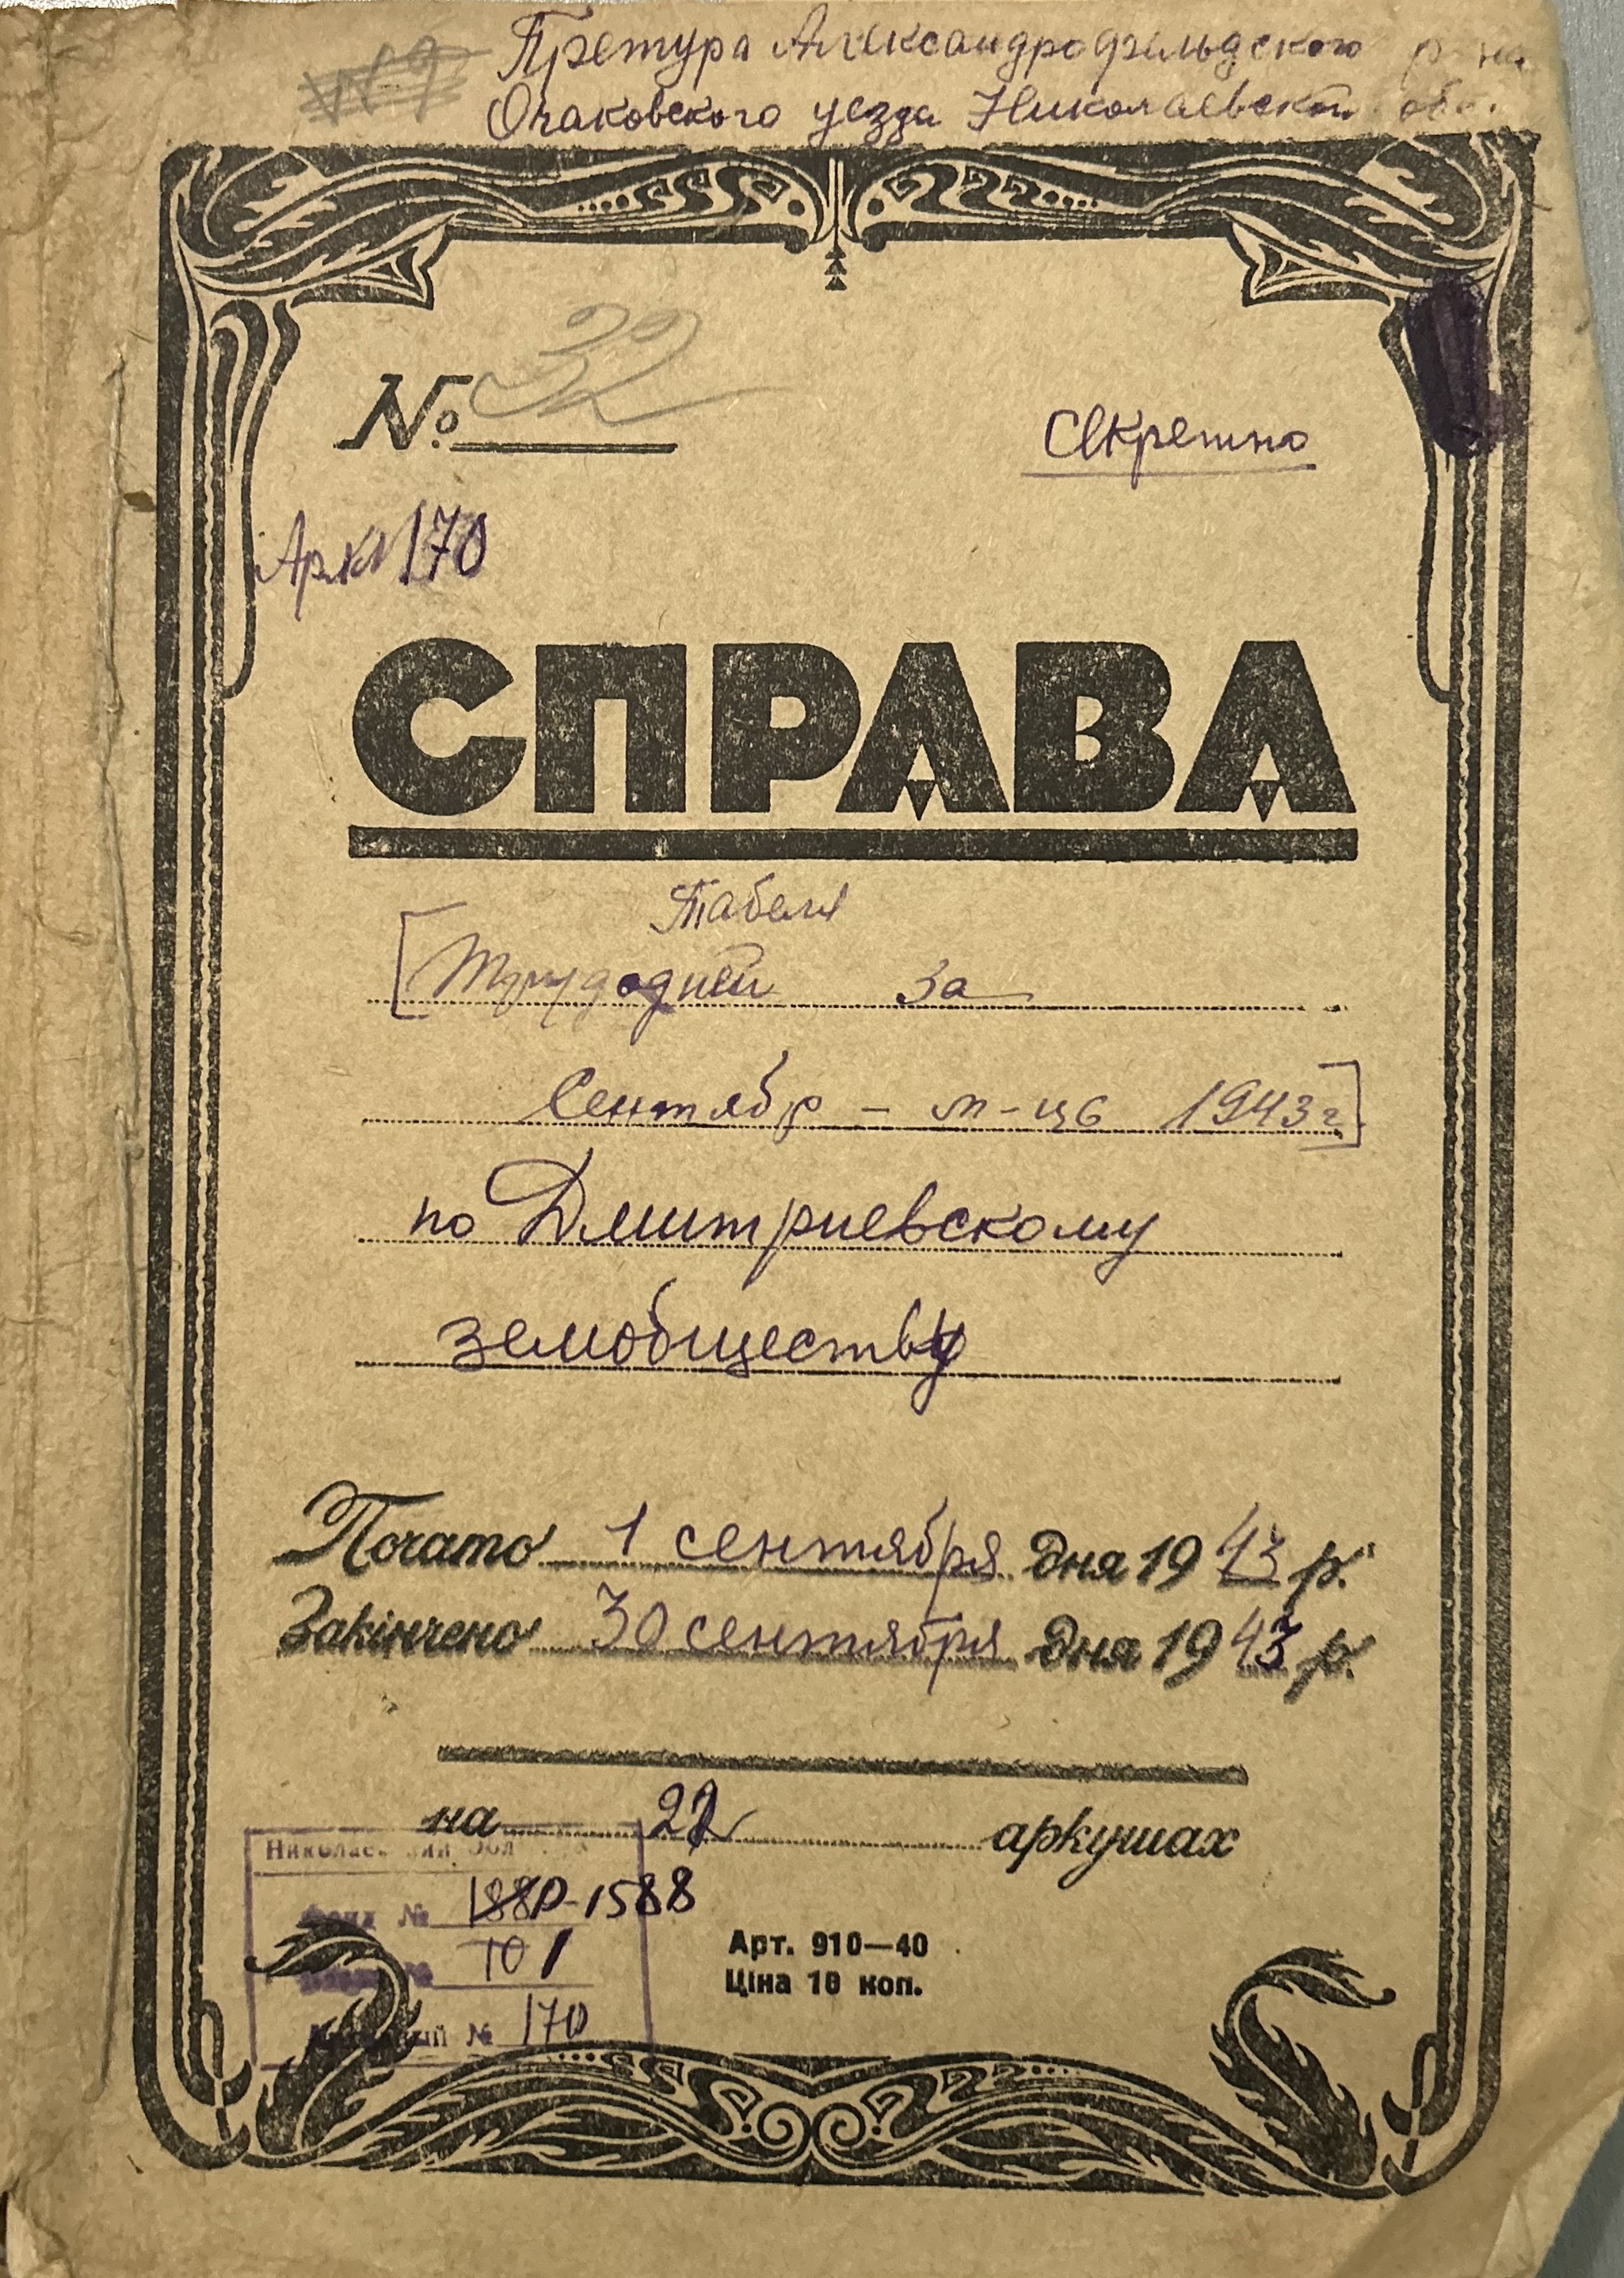 Претура Александрофельдского р-на
Очаковского уезда Николаевской обл.
№ 32
Секретно
Арх 170
СПРАВА
Табеля
Трудодней за
Сентябр - м-ць 1943 г.
по Дмитриевскому
земобществу
Почато 1 сентября дня 1943 р.
Закінчено 30 сентября дня 1943 р.
на 22 аркушах
Фонд № Р-1588
1
№ 170
Арт. 910—40
Ціна 10 коп.